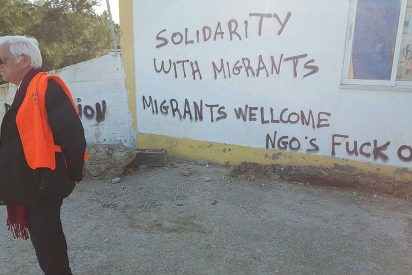 SOLIDARITY
WITH MIGRANTS
MIGRANTS WELLCOME
NGO'S FUCK O